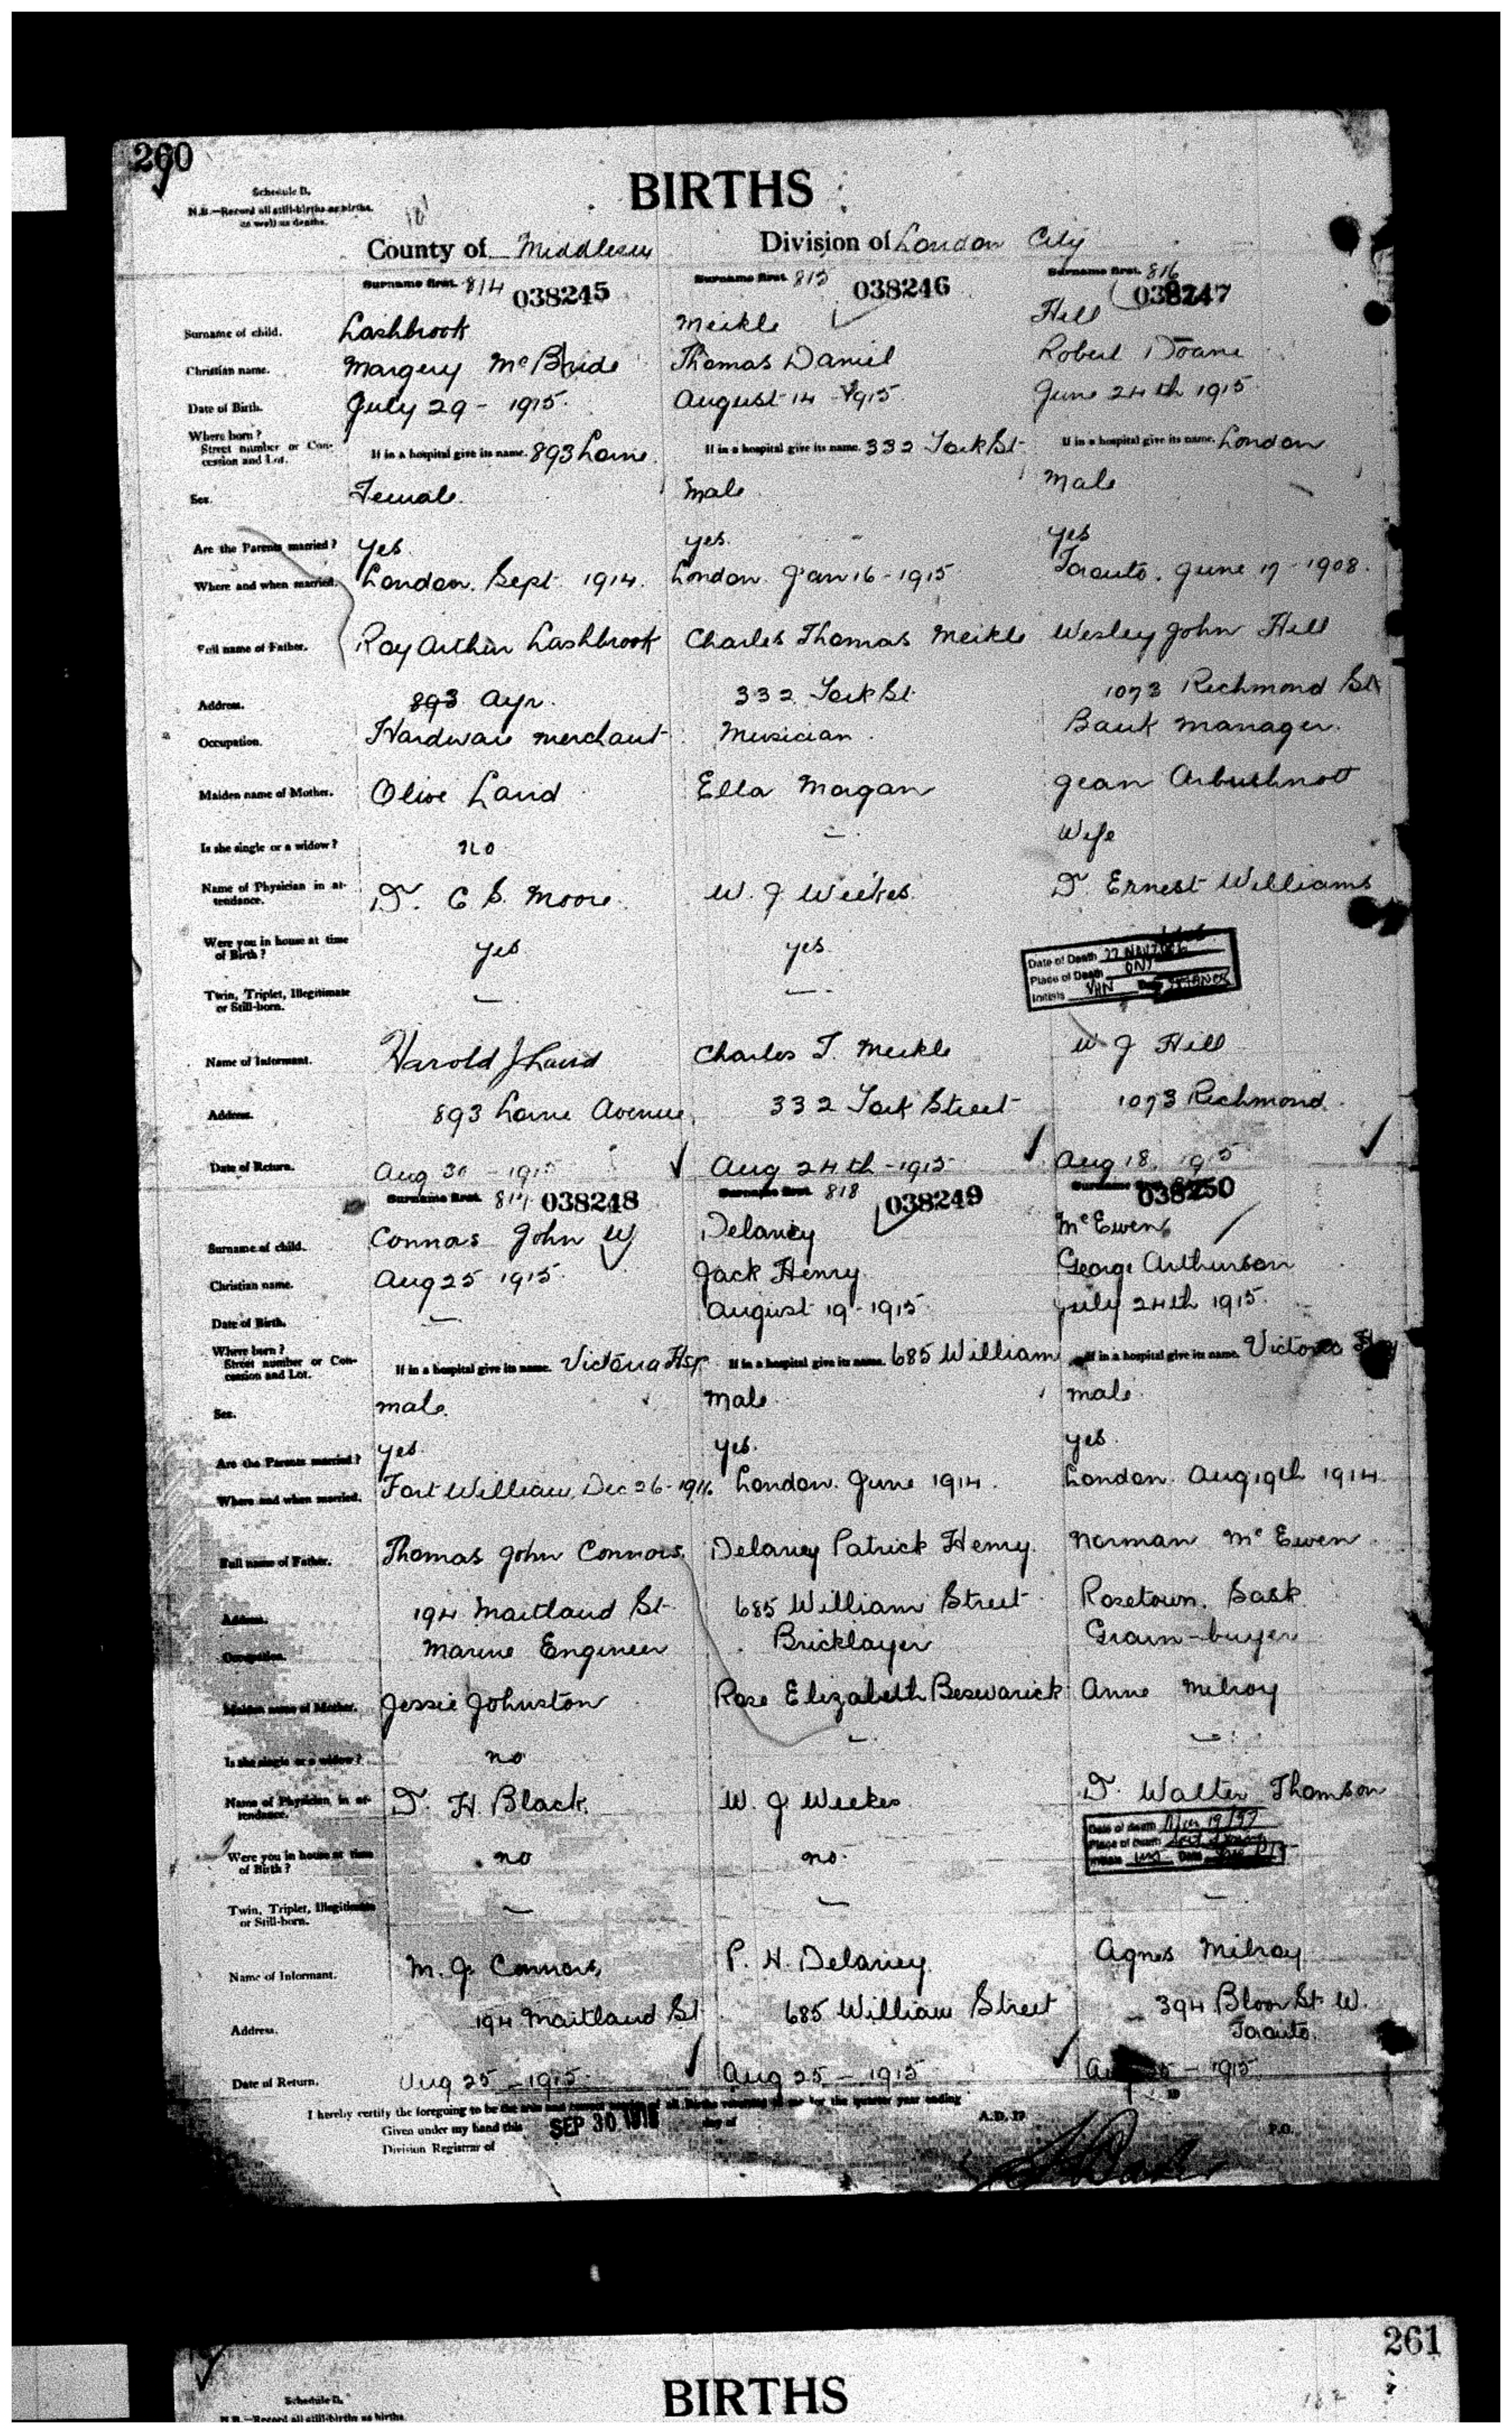 260
Schedule B.
N.B.—Record all still-births as births,
as well as deaths.
BIRTHS
County of Middlesex Division of London City
Surname first. 814 038245 Surname first. 815 038246 Surname first. 816 038247
Surname of child. Lashbrook Meikle Hill
Christian name. Margery McBride Thomas Daniel Robert Doane
Date of Birth. July 29 - 1915. August 14 - 1915. June 24th 1915
Where born?
Street number or Con-
cession and Lot. If in a hospital give its name. 893 Lorne. If in a hospital give its name. 332 York St. If in a hospital give its name. London
Sex. Female. Male Male
Are the Parents married? Yes. yes. yes
Where and when married. London. Sept. 1914. London. Jan 16 - 1915 Toronto. June 17 - 1908.
Full name of Father. Roy Arthur Lashbrook Charles Thomas Meikle Wesley John Hill
Address. 893 Ayr. 332 York St. 1073 Richmond St
Occupation. Hardware merchant Musician. Bank manager.
Maiden name of Mother. Olive Laird Ella Magan Jean Arbuthnott
Is she single or a widow? no — Wife
Name of Physician in at-
tendance. Dr. C S. Moore. W. J Weekes. Dr Ernest Williams
Were you in house at time
of Birth? yes yes.
Date of Death
Place of Death ONT
Initials VHN
Twin, Triplet, Illegitimate
or Still-born. — —
Name of Informant. Harold J Laird Charles T. Meikle W J Hill
Address. 893 Lorne Avenue. 332 York Street 1073 Richmond.
Date of Return. Aug 30 - 1915 Aug 24th - 1915 Aug 18. 1915
Surname first. 038248 Surname first. 818 038249 Surname first. 038250
Surname of child. Connors John W Delaney McEwen
Christian name. Aug 25 1915. Jack Henry George Arthurson
Date of Birth. — August 19 - 1915 July 24th 1915.
Where born?
Street number or Con-
cession and Lot. If in a hospital give its name. Victoria Hsp If in a hospital give its name. 685 William If in a hospital give its name. Victoria
Sex. male. Male male
Are the Parents married? yes yes. yes
Where and when married. Fort William, Dec 26 - London. June 1914. London. Aug 19th 1914
Full name of Father. Thomas John Connors. Delaney Patrick Henry. Norman McEwen
Address. 194 Maitland St 685 William Street Rosetown. Sask
Occupation. Marine Engineer Bricklayer Grain-buyer
Maiden name of Mother. Jessie Johnston Rose Elizabeth Beswarick Anne Milroy
Is she single or a widow? no — —
Name of Physician in at-
tendance. Dr. H. Black. W. J Weekes Dr. Walter Thomson
Were you in house at time
of Birth? no no.
Date of death
Place of Death
Initials Date
Twin, Triplet, Illegitimate
or Still-born. — — —
Name of Informant. M. J. Connors P. H. Delaney. Agnes Milroy
Address. 194 Maitland St 685 William Street 394 Bloor St. W.
Toronto.
Date of Return. Aug 25 - 1915. Aug 25 - 1915 - 1915
I hereby certify the foregoing to be the true and correct of all Births returned to me for the quarter year ending 19
Given under my hand this SEP 30 1915 day of A.D. 19
Division Registrar of P.O.
261
Schedule B.
N.B.—Record all still-births as births,
BIRTHS